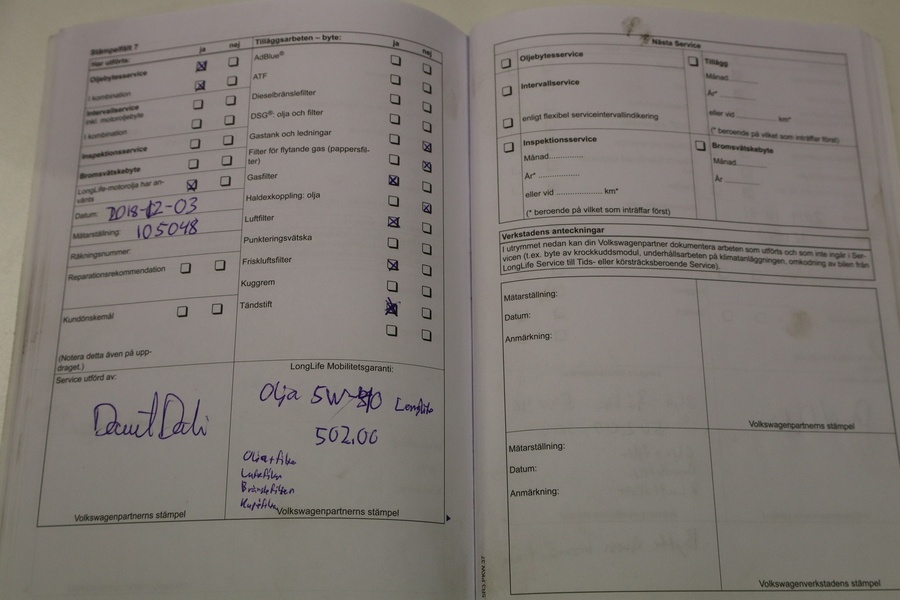 Stämpelfält 7
Har utförts: ja nej
Oljebytesservice
I kombination
Intervallservice
inkl. motoroljebyte
I kombination
Inspektionsservice
Bromsvätskebyte
LongLife-motorolja har an-
vänts
Datum: 2018-12-03
Mätarställning: 105048
Räkningsnummer:
Reparationsrekommendation
Kundönskemål
(Notera detta även på upp-
draget.)
Service utförd av:
Volkswagenpartnerns stämpel
Tilläggsarbeten – byte: ja nej
AdBlue®
ATF
Dieselbränslefilter
DSG®: olja och filter
Gastank och ledningar
Filter för flytande gas (pappersfil-
ter)
Gasfilter
Haldexkoppling: olja
Luftfilter
Punkteringsvätska
Friskluftsfilter
Kuggrem
Tändstift
LongLife Mobilitetsgaranti:
Olja 5W-30 Longlife
502.00
Olja+filter
Luftfilter
Bränslefilter
Kupéfilter
Volkswagenpartnerns stämpel
Nästa Service
Oljebytesservice
Intervallservice
enligt flexibel serviceintervallindikering
Inspektionsservice
Månad..............
År* .................
eller vid .................... km*
(* beroende på vilket som inträffar först)
Tillägg
Månad..........
År* ...............
eller vid ................ km*
(* beroende på vilket som inträffar först)
Bromsvätskebyte
Månad............
År ..............
Verkstadens anteckningar
I utrymmet nedan kan din Volkswagenpartner dokumentera arbeten som utförts och som inte ingår i Ser-
vicen (t.ex. byte av krockkuddsmodul, underhållsarbeten på klimatanläggningen, omkodning av bilen från
LongLife Service till Tids- eller körsträcksberoende Service).
Mätarställning:
Datum:
Anmärkning:
Volkswagenpartnerns stämpel
Mätarställning:
Datum:
Anmärkning:
Volkswagenverkstadens stämpel